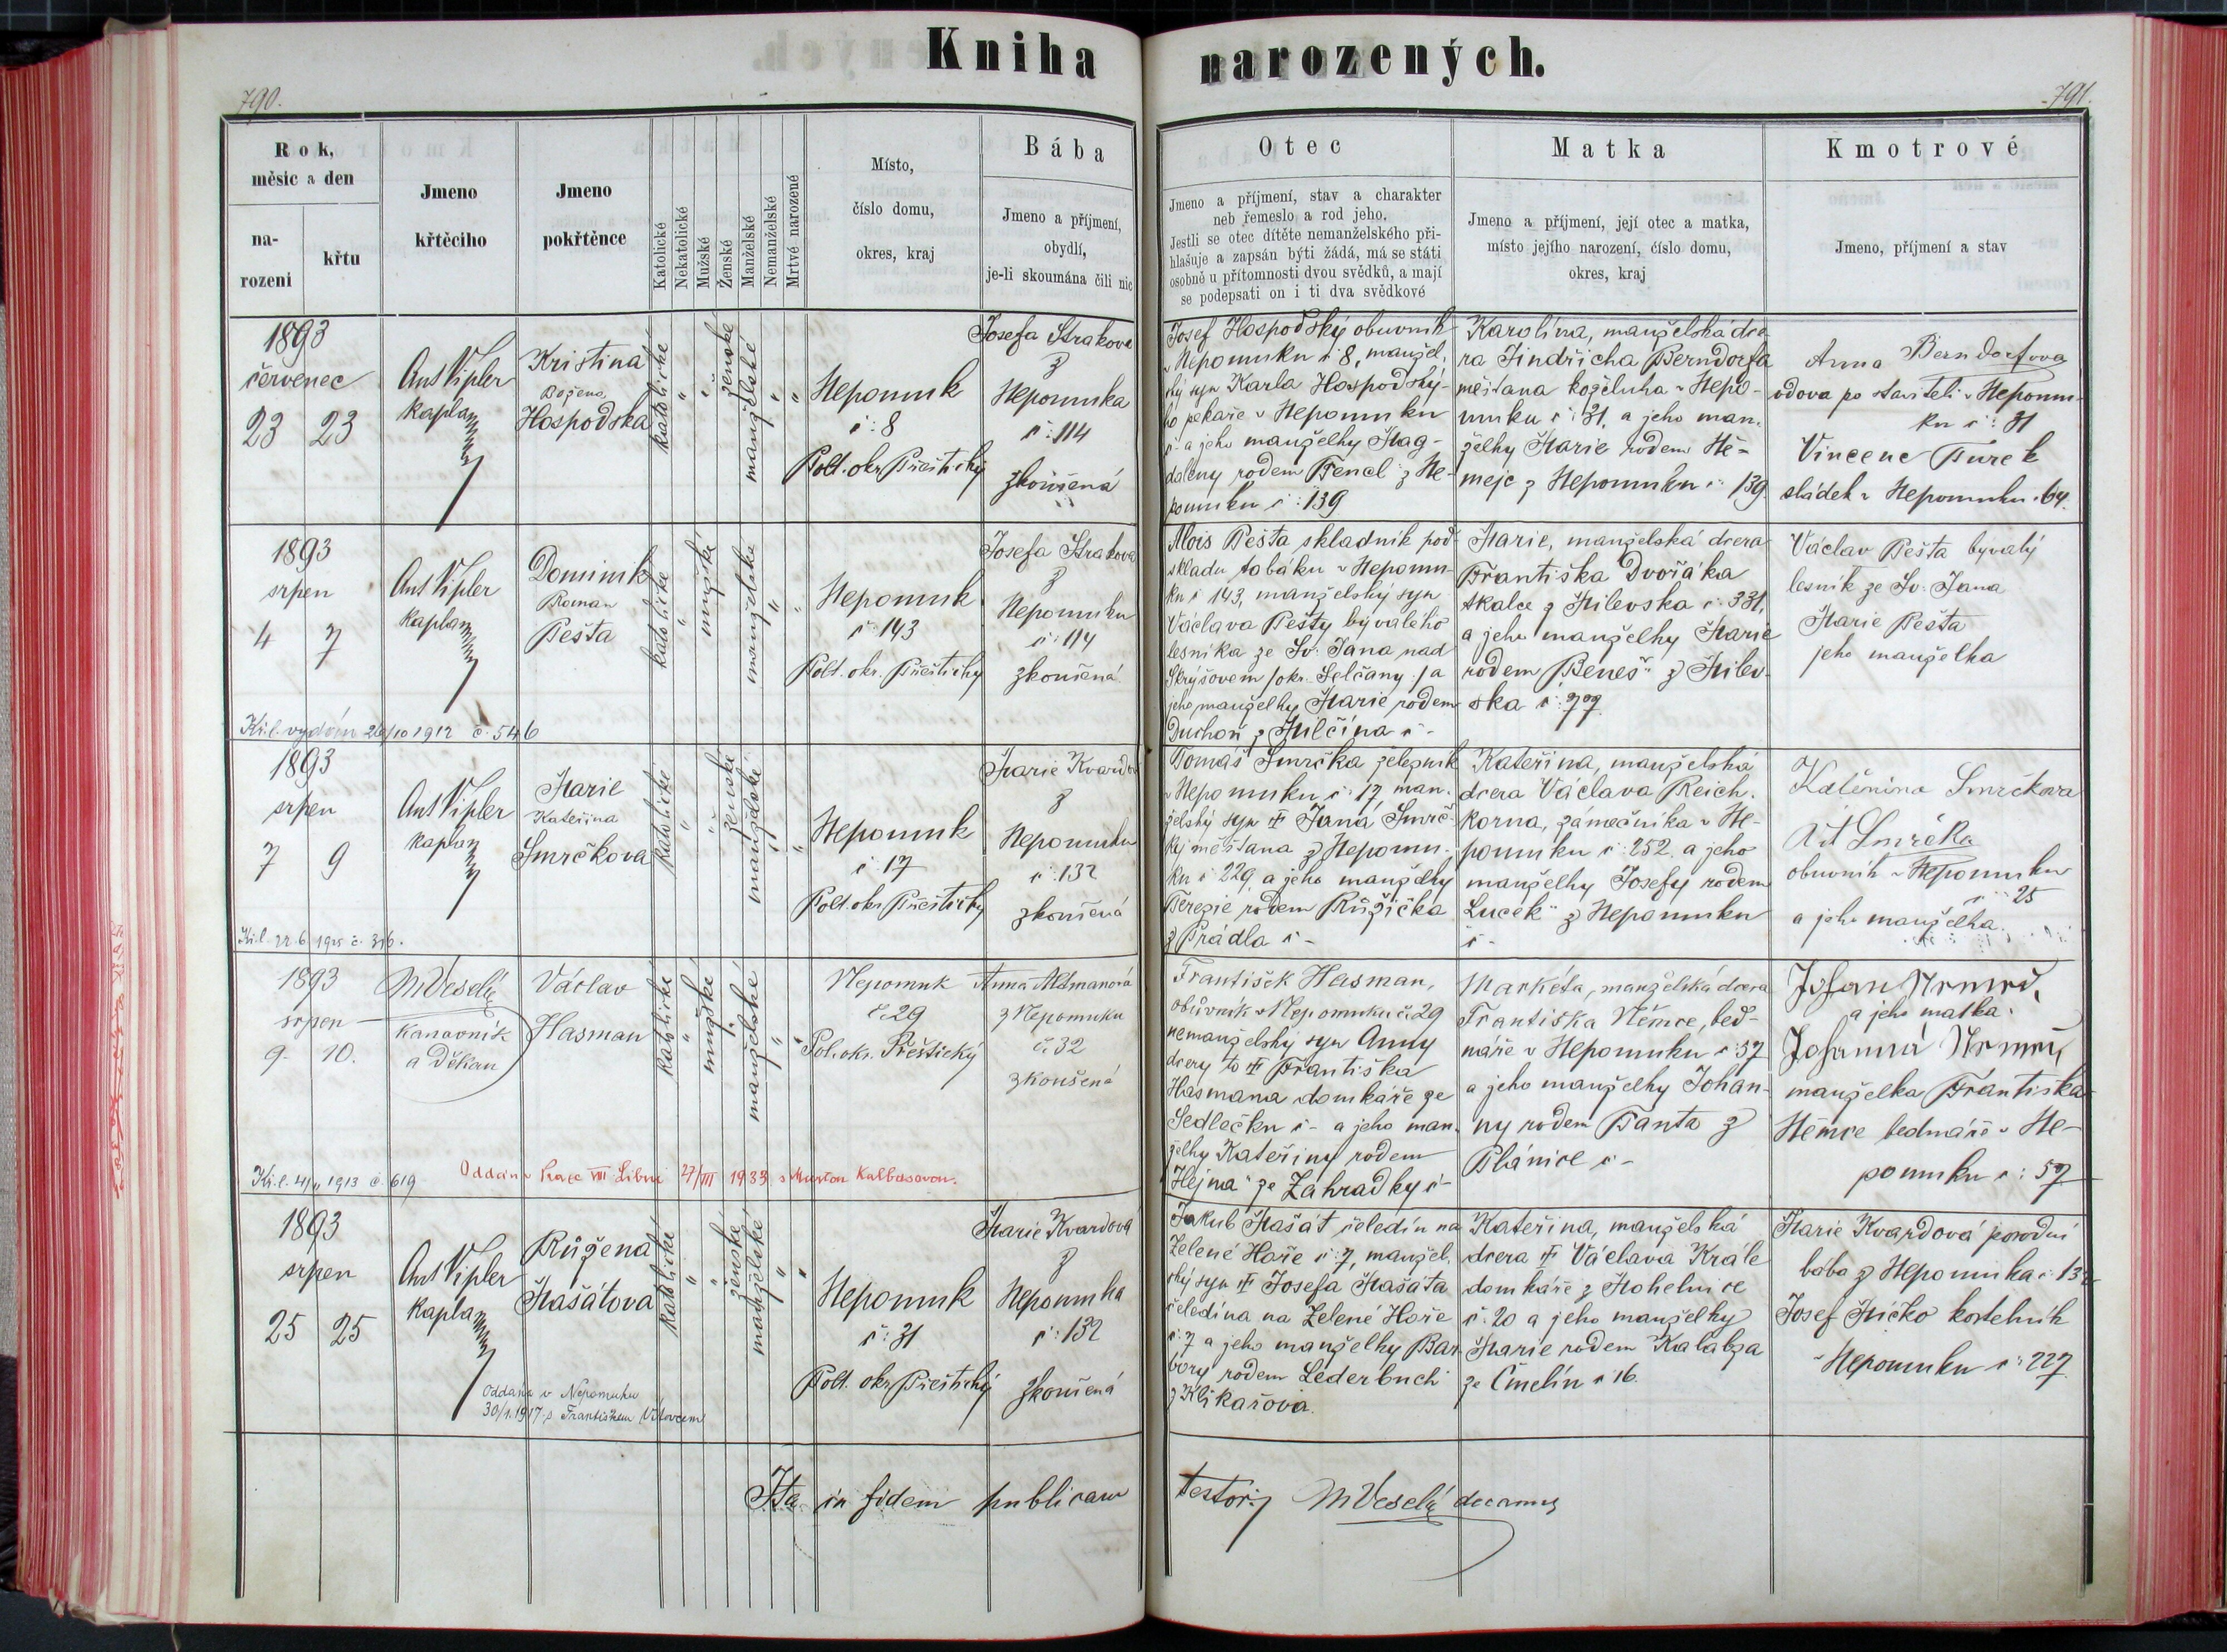 Kniha narozených.
790.
791.
Rok,
měsíc a den
na-
rození
křtu
Jmeno
křtěcího
Jmeno
pokřtěnce
Katolické
Nekatolické
Mužské
Ženské
Manželské
Nemanželské
Mrtvé narozené
Místo,
číslo domu,
okres, kraj
Bába
Jmeno a příjmení,
obydlí,
je-li skoumána čili nic
Otec
Jmeno a příjmení, stav a charakter
neb řemeslo a rod jeho.
Jestli se otec dítěte nemanželského při-
hlašuje a zapsán býti žádá, má se státi
osobně u přítomnosti dvou svědků, a mají
se podepsati on i ti dva svědkové
Matka
Jmeno a příjmení, její otec a matka,
místo jejího narození, číslo domu,
okres, kraj
Kmotrové
Jmeno, příjmení a stav
1893
červenec
23 23
Ant Vipler
kaplan
Kristina
Božena
Hospodská
katolické
"
"
ženské
manželské
"
"
Nepomuk
č: 8
Polt. okr. Přeštický
Josefa Straková
z
Nepomuka
č: 114
zkoušená
Josef Hospodský obuvník
v Nepomuku č 8, manžel.
ský syn Karla Hospodský-
ho pekaře v Nepomuku
č - a jeho manželky Mag-
daleny rodem Fencl z Ne-
pomuku č: 139
Karolína, manželská dce
ra Jindřicha Berndorfa
měšťana koželuha v Nepo-
muku č: 31, a jeho man.
želky Marie rodem Ně-
mejc z Nepomuku č: 139
Anna Berndorfova
vdova po staviteli v Nepomu-
ku č: 31
Vincenc Turek
sládek v Nepomuku č 64.
1893
srpen
4 7
Ant Vipler
kaplan
Dominik
Roman
Pešta
katolické
"
mužské
manželské
"
"
Nepomuk
č: 143
Polt. okr. Přeštický
Josefa Straková
z
Nepomuku
č: 114
zkoušená
Alois Pešta skladník pod
skladu tabáku v Nepomu
ku č 143, manželský syn
Václava Pešty bývalého
lesníka ze Sv: Jana nad
Skrýšovem /okr. Selčany:/ a
jeho manželky Marie rodem
Duchoň z Milčína č -
Marie, manželská dcera
Františka Dvořáka
tkalce z Milevska č: 331,
a jeho manželky Marie
rodem Beneš z Milev-
ska č: 77
Václav Pešta bývalý
lesník ze Sv: Jana
Marie Pešta
jeho manželka
Kř. l. vydán 26/10 1912 č. 546
1893
srpen
7 9
Ant Vipler
kaplan
Marie
Kateřina
Smrčkova
katolické
"
"
ženské
manželské
"
"
Nepomuk
č: 17
Polt. okr. Přeštický
Marie Kvardov
z
Nepomuku
č: 132
zkoušená
Tomáš Smrčka železník
v Nepomuku č: 17 man.
želský syn † Jana Smrč-
ky měšťana z Nepomu-
ku č 229, a jeho manželky
Terezie rodem Růžička
z Prádla č -
Kateřina, manželská
dcera Václava Reich.
korna, zámečníka v Ne-
pomuku č: 252 a jeho
manželky Josefy rodem
Lucek z Nepomuku
č -
Katěřina Smrčkova
Vít Smrčka
obuvník v Nepomuku
č: 25
a jeho manželka.
Kř. l. 22. 6. 1925 č. 316.
1893
srpen
9. 10.
M Veselý
kanovník
a děkan
Václav
Hasman
katolické
"
mužské
manželské
"
"
Nepomuk
č. 29
Pol. okr. Přeštický
Anna Altmanová
z Nepomuku
č. 32
zkoušená
František Hasman,
obuvník v Nepomuku č. 29
nemanželský syn Anny
dcery to † Františka
Hasmana domkáře ze
Sedlečku č - a jeho man.
želky Kateřiny rodem
Hejna ze Záhradky č -
Markéta, manželská dcera
Františka Němce, bed-
náře v Nepomuku č: 57
a jeho manželky Johan-
ny rodem Panta z
Plánice č -
Johan Nemec,
a jeho matka.
Johanna Nemec,
manželka Františka
Němce bednáře v Ne-
pomuku č: 57
Kř. l. 4/11 1913 č. 619
Oddán v Praze VIII Libni 27/VIII 1933 s Martou Kalbasovou.
1893
srpen
25 25
Ant Vipler
kaplan
Růžena
Mašátova
katolické
"
"
ženské
manželské
"
"
Nepomuk
č: 31
Polt. okr. Přeštický
Marie Kvardová
z
Nepomuka
č: 132
zkoušená
Jakub Mašát čeledín na
Zelené Hoře č: 7, manžel.
ský syn † Josefa Mašáta
čeledína na Zelené Hoře
č: 7 a jeho manželky Bar
bory rodem Lederbuch
z Klikařova.
Kateřina, manželská
dcera † Václava Krále
domkáře z Mohelnice
č: 20 a jeho manželky
Marie rodem Kalabza
ze Čmelín č 16.
Marie Kvardová porodní
bába z Nepomuka č: 132
Josef Mičko kostelník
v Nepomuku č: 227
Oddána v Nepomuku
30/1. 1917 s Františkem Vítovcem
Ita in fidem publicam
testor: M Veselý decanus